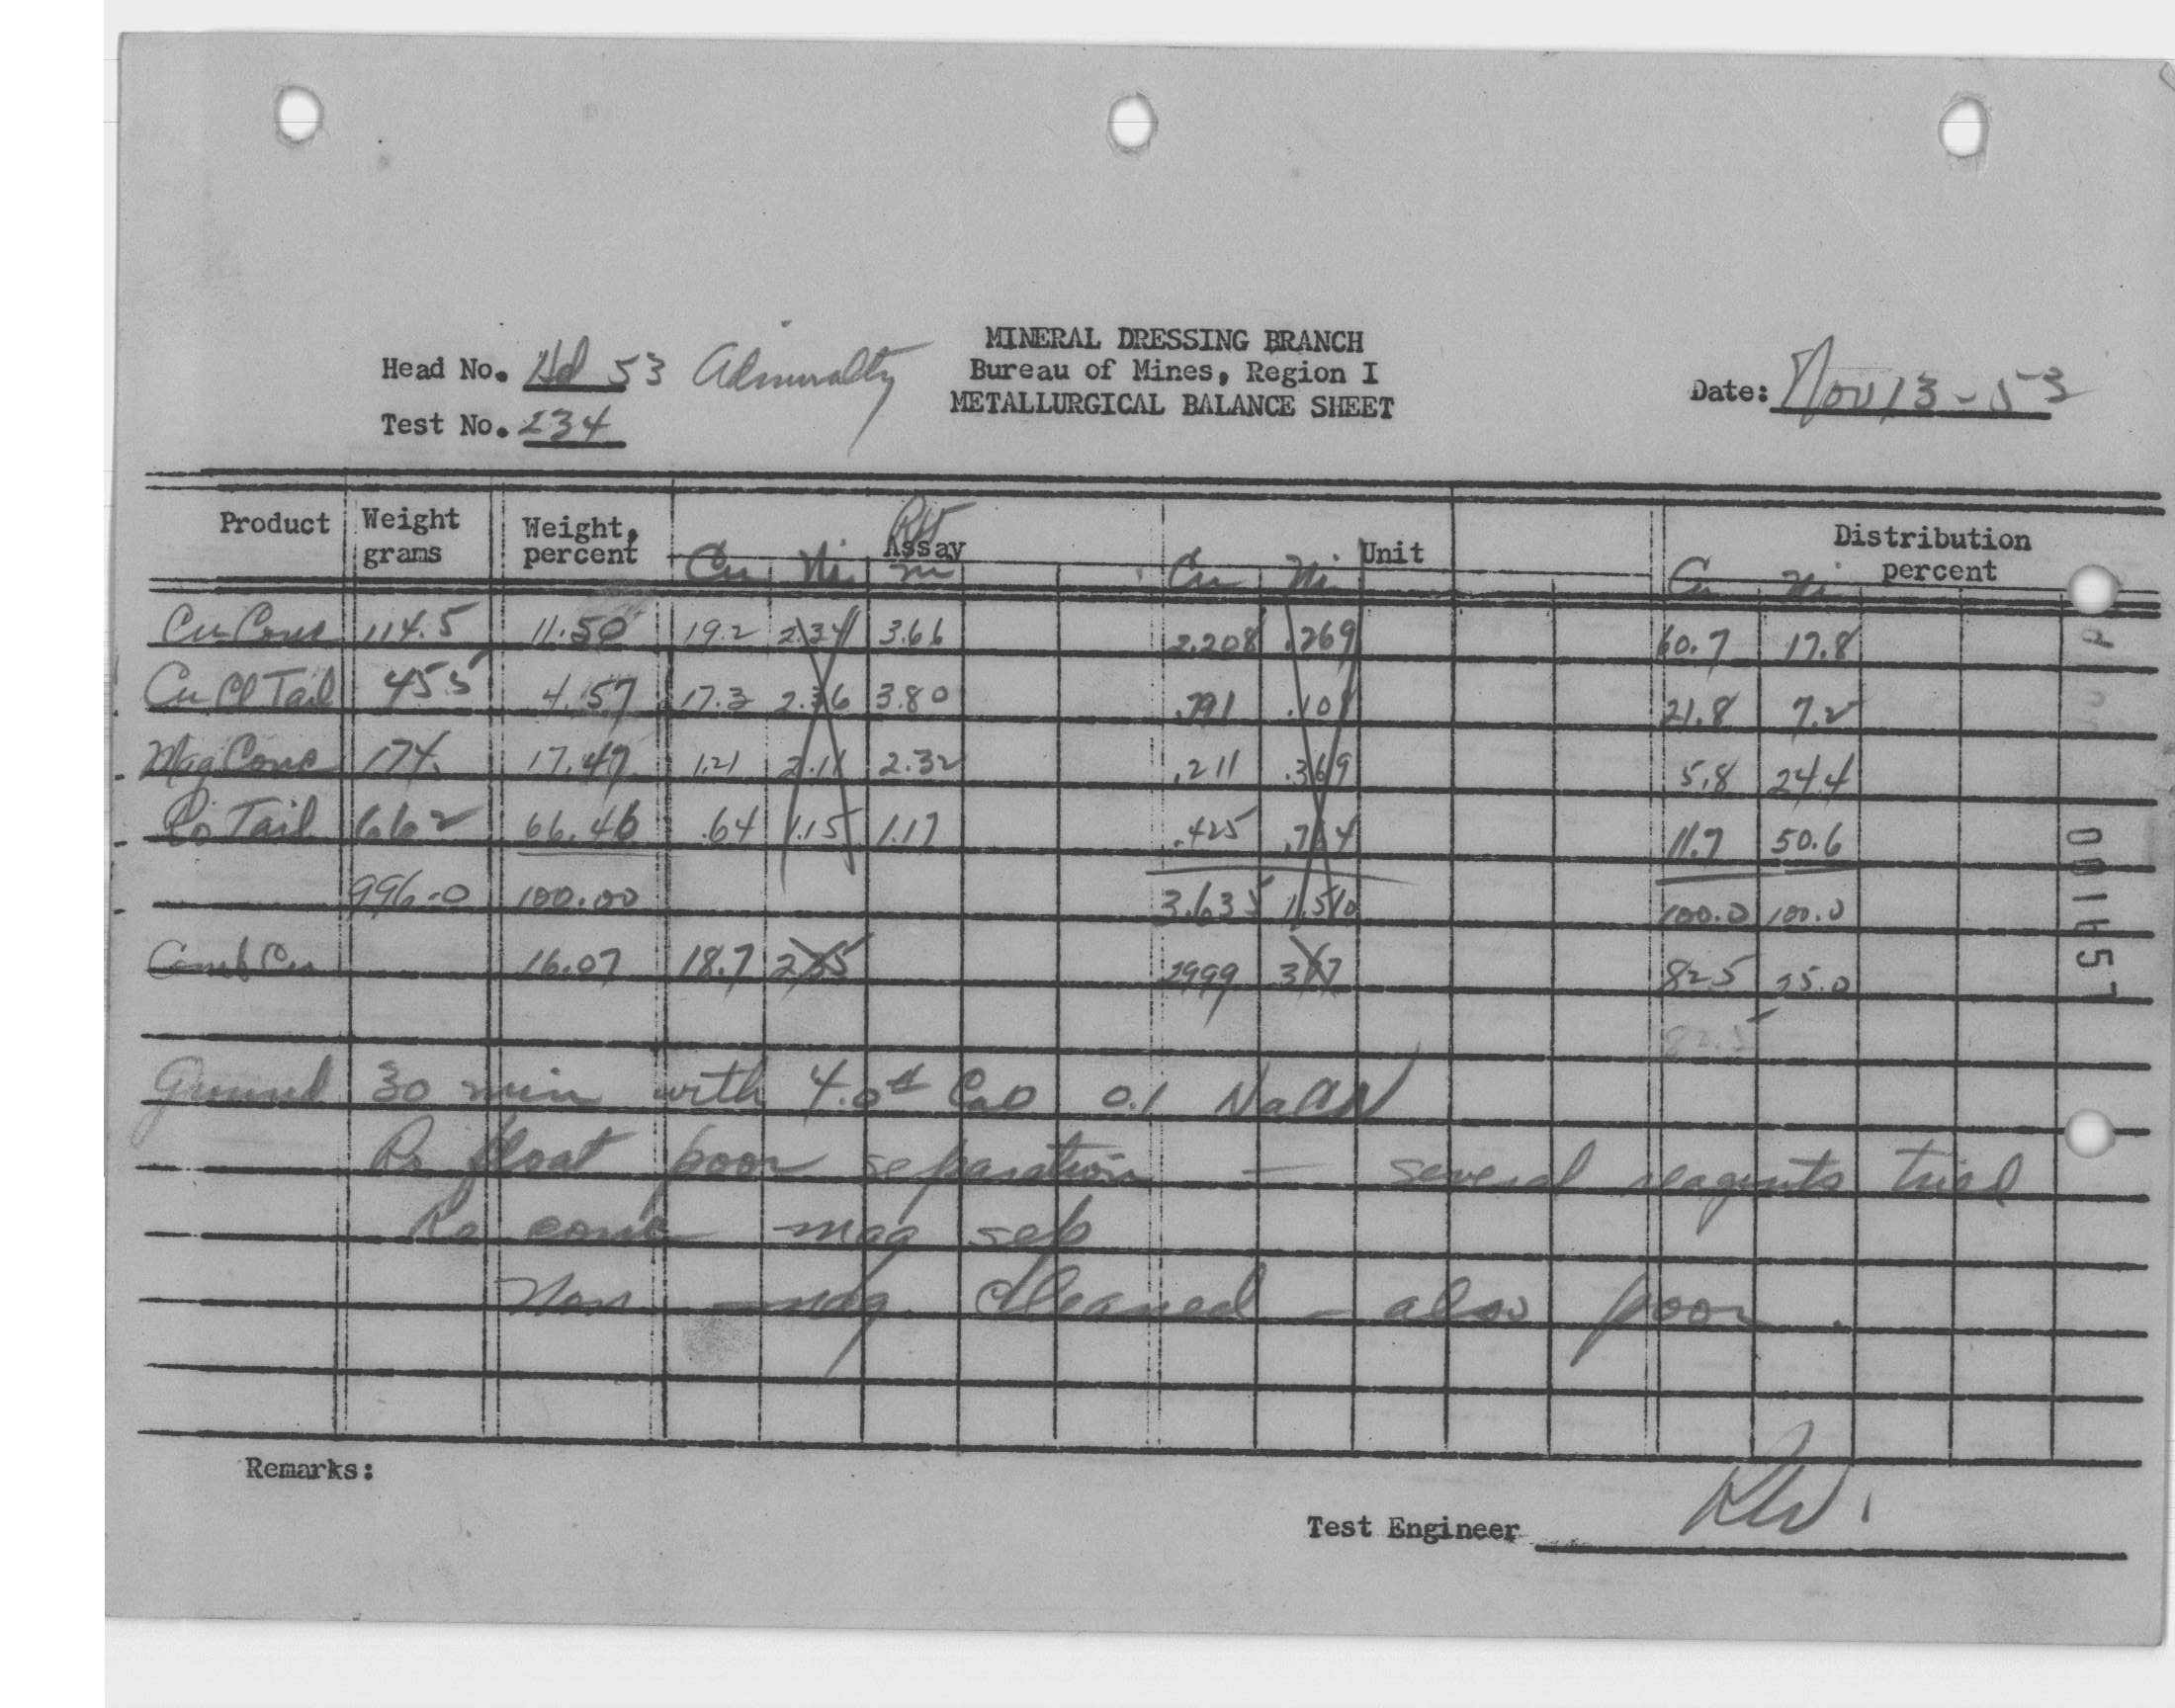 MINERAL DRESSING BRANCH
Head No. Hd 53 Admiralty Bureau of Mines, Region I Date: Nov 13-53
METALLURGICAL BALANCE SHEET
Test No. 234
Product Weight grams Weight, percent Assay Unit Distribution percent
Cu Ni Ni Cu Ni Cu Ni
Cu Conc 114.5 11.50 19.2 2.34 3.66 2.208 .269 60.7 17.8
Cu Cl Tail 45.5 4.57 17.3 2.36 3.80 .791 .108 21.8 7.2
Mag Conc 174. 17.47 1.21 2.11 2.32 .211 .369 5.8 24.4
Ro Tail 662 66.46 .64 1.15 1.17 .425 .764 11.7 50.6
996.0 100.00 3.635 1.510 100.0 100.0
Comb Cu 16.07 18.7 2.35 2.999 .377 82.5 25.0
82.5
Ground 30 min with 4.0# CaO 0.1 NaCN
Ro float poor separation — several reagents tried
Ro conc mag sep
Non-mag cleaned - also poor.
Remarks:
Test Engineer RW.